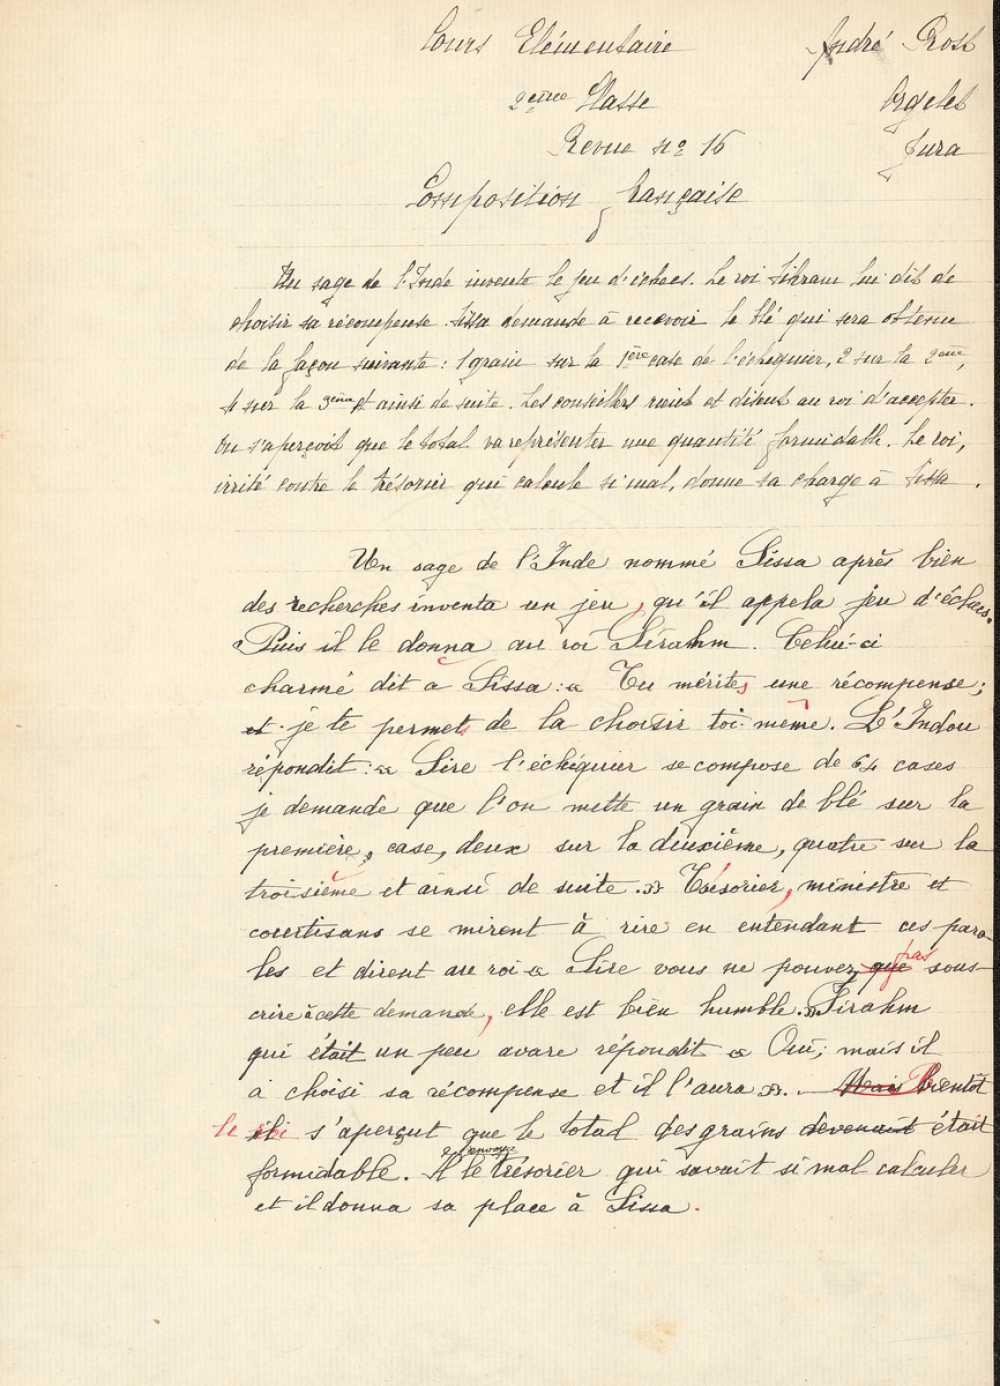 Cours Elémentaire
André Prost
2ème Classe
Orgelet
Revue n° 16
Jura
Composition française
Un sage de l'Inde invente le jeu d'échecs. Le roi Sihram lui dit de
choisir sa récompense. Sissa demande à recevoir le blé qui sera obtenu
de la façon suivante : 1 grain sur la 1ère case de l'échequier, 2 sur la 2ème,
4 sur la 3ème et ainsi de suite. Les conseillers rient et disent au roi d'accepter.
On s'aperçoit que le total va représenter une quantité formidable. Le roi,
irrité contre le trésorier qui calcule si mal, donne sa charge à Sissa.
Un sage de l'Inde nommé Sissa après bien
des recherches inventa un jeu, qu'il appela jeu d'échecs.
Puis il le donna au roi Sirahm. Celui-ci
charmé dit a Sissa : « Tu mérites une récompense ;
et je te permets de la choisir toi-même. L'Indou
répondit : « Sire l'échiquier se compose de 64 cases
je demande que l'on mette un grain de blé sur la
première, case, deux sur la deuxième, quatre sur la
troisième et ainsi de suite. » Trésorier, ministre et
courtisans se mirent à rire en entendant ces paro-
les et dirent au roi « Sire vous ne pouvez que pas sous-
crire à cette demande, elle est bien humble. » Sirahm
qui était un peu avare répondit « Oui, mais il
a choisi sa récompense et il l'aura ». Mais Bientôt
le roi s'aperçut que le total des grains devenait était
formidable. Il renvoya le trésorier qui savait si mal calculer
et il donna sa place à Sissa.